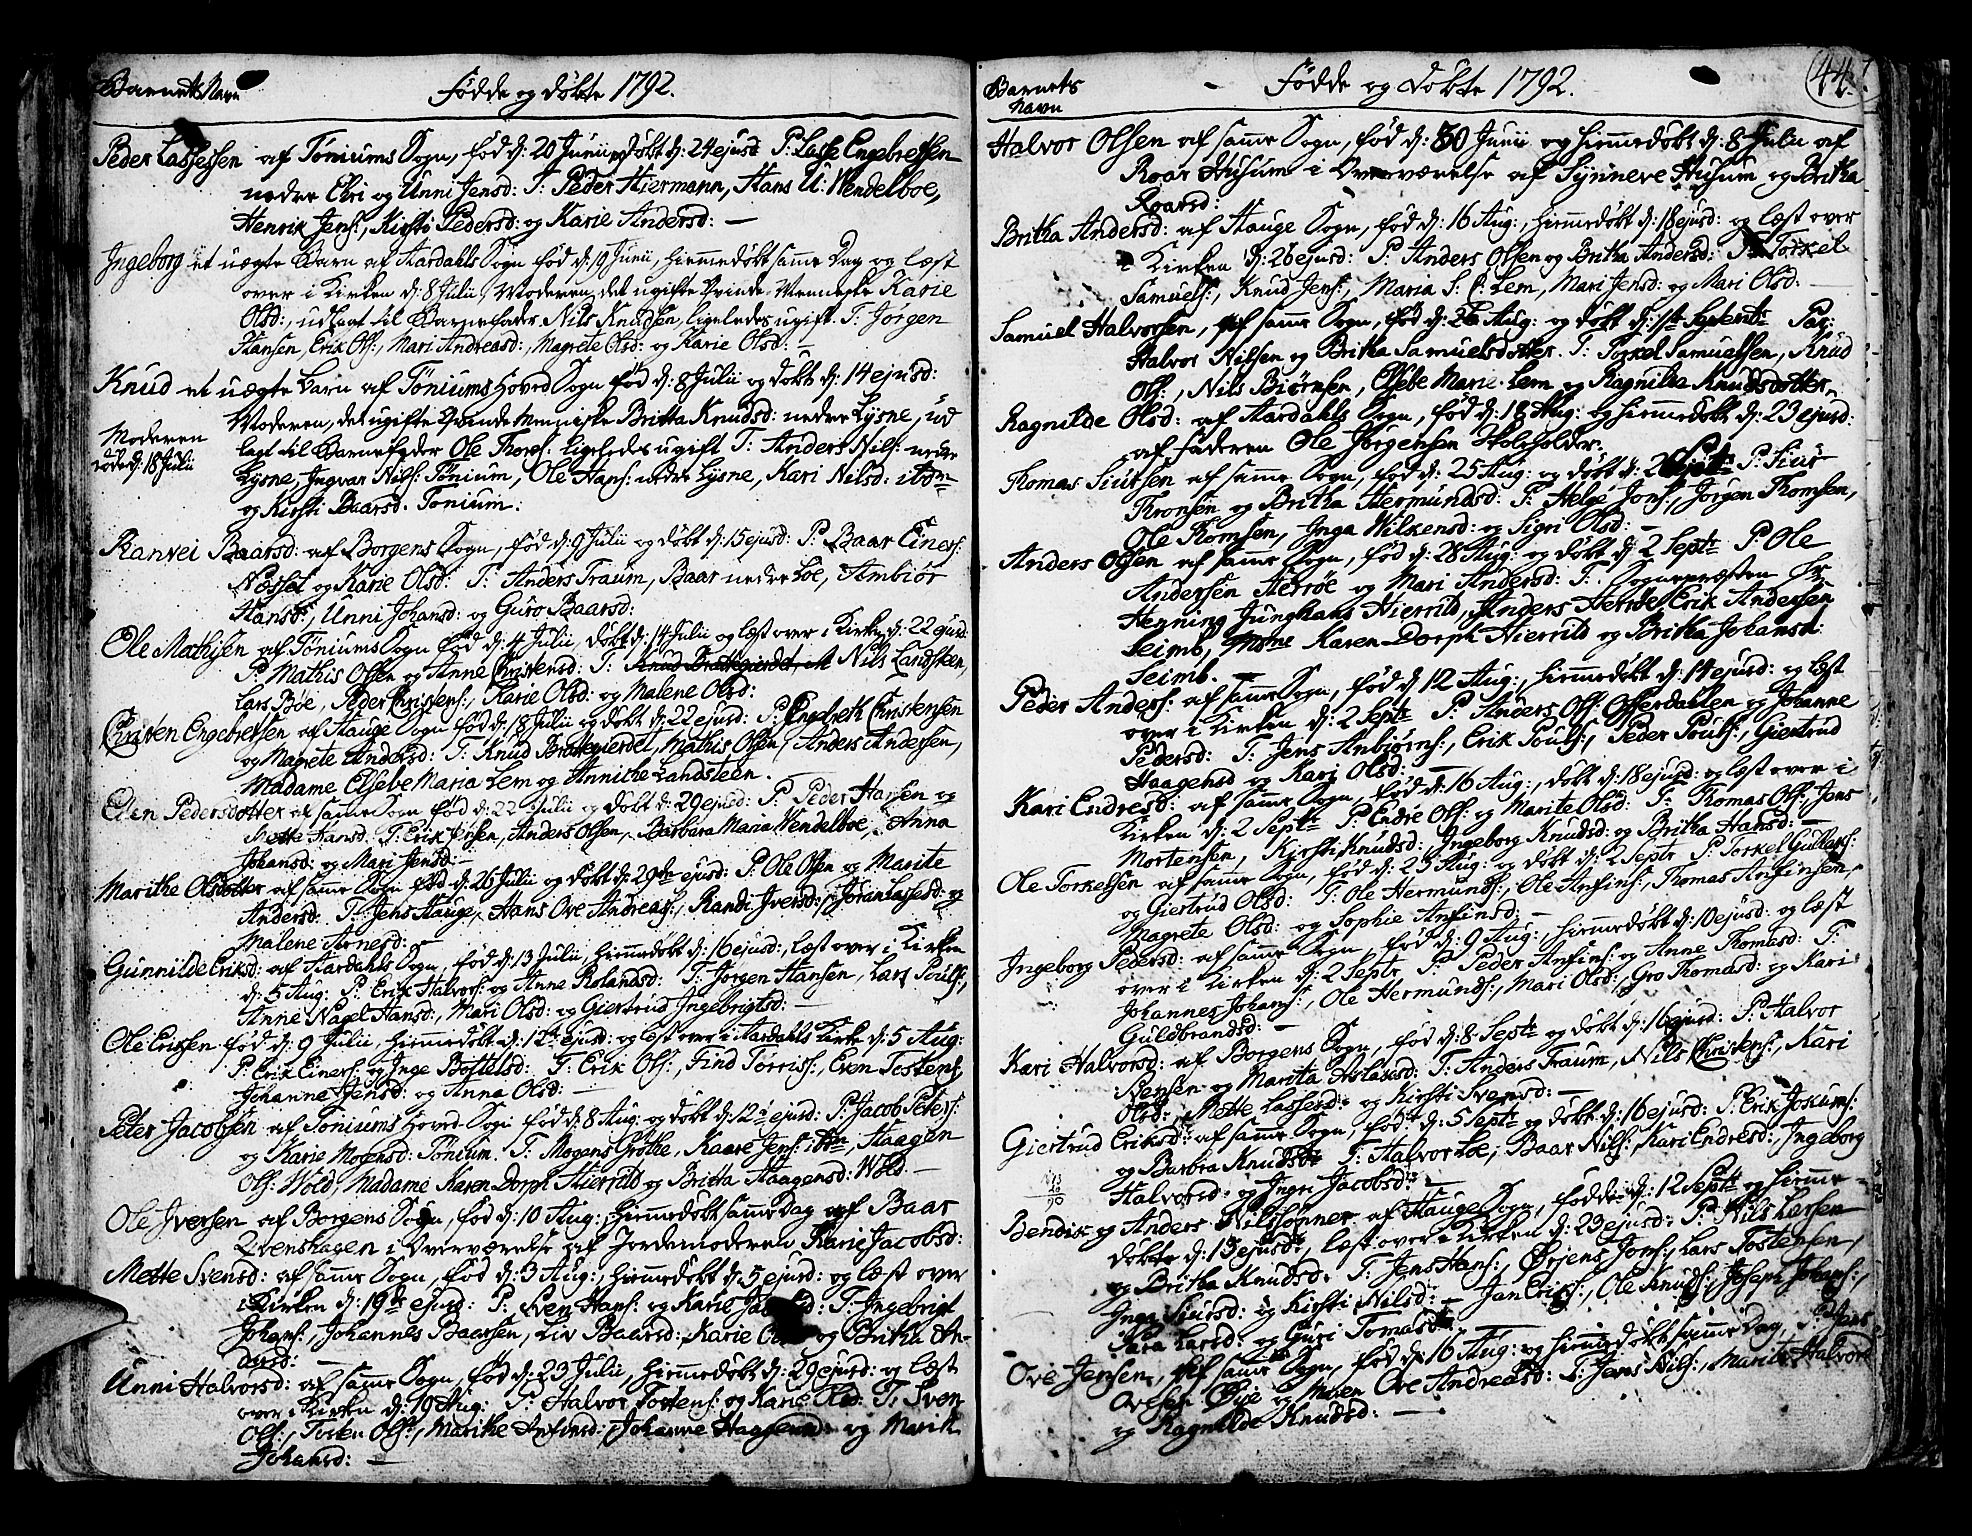 Barnets Navn
Fødde og døbte 1792.
Peder Lassessen af Tøniums Sogn, fød d: 20 Junii døbt d: 24 ejusd P: Lasse Engebretsen
nedre Eri og Unni Jensd: T: Peder Hiermann, Hans U: Wendelboe,
Henrik Jens:, Kirsti Pedersd: og Karie Andersd: —
Ingeborg et uægte Barn af Aardahls Sogn fød d: 19 Junii, hiemmedøbt samme Dag og læst
over i Kirken d: 8 Julii, Moderen det ugifte Qvinde-Menneske Karie
Olsd:, udlagt til Barnefader Nils Knudsen, ligeledes ugift. T: Jørgen
Hansen, Erik Ols:, Mari Andreasd:, Magrete Olsd: og Karie Olsd: —
Knud et uægte Barn af Tøniums Hoved Sogn fød d: 8 Julii og døbt d: 14 ejusd:
Moderen, det ugifte Qvinde Menniske Britta Knudsd: nedre Lysne, ud
Moderen
døde d: 18 Julii
lagt til Barnefader Ole Thores: ligeledes ugift T: Anders Nils: nedre
Lysne, Ingvar Nils: Tønium, Ole Hans: nedre Lysne, Kari Nilsd: ibdm
og Kirsti Baarsd. Tønium:
Ranvei Baarsd: af Borgens Sogn, fød d: 9 Julii og døbt d: 15 ejusd: P: Baar Einers:
Nesset og Karie Olsd: T: Anders Traum, Baar nedre Loe, Ambiør
Hansd:, Unni Johansd: og Guro Baarsd:
Ole Mathisen af Tøniums Sogn fød d: 4 Julii, døbt d: 14 Julii og læst over i Kirken d: 22 ejusd:
P: Mathis Olsen og Anne Christensd: T: Nils Landsteen,
Lars Bøe, Peder Christens:, Karie Olsd: og Malene Olsd:
Christen Engebretsen af Hauge Sogn fød d: 18 Julii og døbt d: 22 ejusd: P: Engebreth Christensen
og Magrete Andersd: T: Knud Brattegierdet, Mathis Olsen, Anders Andersen,
Madame Elsebe Maria Lem og Annichen Landsteen.
Elen Pedersdotter af samme Sogn fød d: 22 Julii og døbt d: 29 ejusd: P: Peder Hansen og
Mette Hansd: T: Erik Iversen, Anders Olsen, Barbara Maria Wendelboe, Anna
Johansd: og Mari Jensd: —
Marithe Olsdotter af samme Sogn fød d: 26 Julii og døbt d: 29de ejusd: P: Ole Olsen og Marite
Andersd: T: Jens Hauge, Hans Ove Andreas:, Randi Iversd:, Jøran Lassesd: og
Malene Arnesd: —
Gunnilde Eriksd: af Aardahls Sogn, fød d: 13 Julii, hiemmedøbt d: 16 ejusd:, læst over i Kirken
d: 5 Aug: P: Erik Halvors: og Anne Rolandsd: T: Jørgen Hansen, Lars Pouls:,
Anne Nagel Hansd:, Mari Olsd: og Giertrud Ingebrigtsd: —
Ole Eriksen fød d: 9 Julii, hiemmedøbt d: 12te ejusd: og læst over i Aardahls Kirke d: 5 Aug:
P: Erik Einers: og Inge Bottelsd: T: Erik Ols:, Find Tørris:, Even Tostens:,
Johanne Jensd: og Anna Olsd: —
Peter Jacobsen af Tøniums Hoved-Sogn fød d: 8 Aug: og døbt d: 12 ejusd: P: Jacob Peters:
og Karie Mogensd: Tønium. T: Mogens Grøthe, Kaare Jens: ibdm, Haagen
Ols: Wold, Madame Karen Dorph Hierrild og Britta Haagensd: Wold —
Ole Iversen af Borgens Sogn, fød d: 10 Aug: hiemmedøbt samme Dag af Baar
Qvenshagen i Overværelse af Jordemoderen Karie Jacobsd:
Mette Svensd: af samme Sogn, fød d: 3 Aug:, hiemmedøbt d: 5 ejusd: og læst over
i Kirken d: 19de ejusd: P: Sven Hans: og Karie T: Ingebrigt
Johans:, Johannes Baarsen, Liv Baarsd:, Karie og Britha An-
dersd: —
Unni Halvorsd: af samme Sogn, fød d: 23 Julii, hiemmedøbt d: 29 ejusd: og læst
over i Kirken d: 19 Aug: P: Halvor Tostens: og Karie Olsd: T: Sven
Ols:, Tosten Ols:, Marithe Anfinsd:, Johanne Haagensd: og Marith
Johansd: —
Barnets
Navn
Fødde og døbte 1792.
44.
Halvor Olsen af samme Sogn, fød d: 30 Junii og hiemmedøbt d: 8 Julii af
Roar Husum i Overværelse af Synneve Husum og Britha
Roarsd:
Britha Andersd: af Hauge Sogn, fød d: 16 Aug:, hiemmedøbt d: 18 ejusd: og læst over
i Kirken d: 26 ejusd: P: Anders Olsen og Britha Andersd: T: Torkel
Samuels:, Knud Jens:, Maria S. C. Lem, Mari Jensd: og Mari Olsd:
Samuel Halvorsen, af samme Sogn, fød d: 26 Aug: og døbt d: 1ste Septembr P:
Halvor Nilsen og Britha Samuelsdotter. T: Torkel Samuelsen, Knud
Ols:, Nils Biørnsen, Elsebe Marie Lem og Ragnilda Knudsdotter,
Ragnilde Olsd: af Aardahls Sogn, fød d: 18 Aug: og hiemmedøbt d: 23 ejusd:
af Faderen Ole Jørgensen Skoleholder.
Thomas Siursen af samme Sogn, fød d: 25 Aug: og døbt d: 2 Septr P: Siur
Thronsen og Britha Hermundsd: T: Helge Jons:, Jørgen Thomsen,
Ole Thomsen, Inga Wilkensd: og Sigri Olsd: —
Anders Olsen af samme Sogn, fød d: 28 Aug: og døbt d: 2 Septr P: Ole
Andersen Herrøe og Mari Andersd: T: Sognepræsten Hr
Henning Junghans Hierrild, Anders Herrøe, Erik Andersen
Seimb, Mdme Karen Dorph Hierrild og Britha Johansd:
Seimb. —
Peder Anders: af samme Sogn, fød d: 12 Aug:, hiemmedøbt d: 14 ejusd: og læst
over i Kirken d: 2 Septr P: Anders Ols: Offerdahlen og Johanne
Pedersd: T: Jens Anbiørns:, Erik Pouls:, Peder Pouls:, Giertrud
Haagensd og Kari Olsd: —
Kari Endresd: af samme Sogn, fød d: 16 Aug:, døbt d: 18 ejusd: og læst over i
Kirken d: 2 Septr P: Endre Ols: og Marite Olsd: T: Thomas Ols:, Jens
Mortensen, Kirsti Knudsd: Ingeborg Knudsd: og Britha Hansd: —
Ole Torkelsen af samme Sogn, fød d: 23 Aug: og døbt d: 2 Septr P: Torkel Gullachs:
og Giertrud Olsd: T: Ole Hermunds:, Ole Anfins:, Thomas Anfinsen,
Magrete Olsd: og Sophie Anfinsd: —
Ingeborg Pedersd: af samme Sogn, fød d: 9 Aug:, hiemmedøbt d: 10 ejusd: og læst
over i Kirken d: 2 Septr P: Peder Anfins: og Anne Thomasd: T:
Johannes Johans:, Ole Hermunds:, Mari Olsd:, Gro Thomasd: og Kari
Guldbrandsd: —
Kari Halvorsd: af Borgens Sogn, fød d: 8 Septr og døbt d: 16 ejusd: P: Halvor
Svensen og Marita Aslaksd: T: Anders Traum, Nils Christens:, Kari
Olsd:, Mette Lassesd: og Kirsti Svensd: —
Giertrud Eriksd: af samme Sogn, fød d: 5 Septr og døbt d: 16 ejusd: P: Erik Joachums:
og Barbra Knudsd: T: Halvor Loe, Baar Nils:, Kari Endresd:, Ingeborg
Halvorsd: og Ingri Jacobsd: —
Bendix og Anders Nilssønner af Hauge Sogn, fødde d: 12 Septr og hiemme-
døbte d: 15 ejusd:, læst over i Kirken d: 23 ejusd: P: Nils Larsen
og Britha Knudsd: T: Jens Hans:, Ørjens Jons:, Lars Tostensen,
Inga Siursd: og Kirsti Nilsd: — Jan Eriks:, Ole Knuds:, Joseph Johans:,
Sara Larsd: og Guri Tomasd: —
Ove Jensen, af samme Sogn, fød d: 16 Aug: og hiemmedøbt samme Dag P: Jens
Ovesen Øye og Maren Ove Andreasd: T: Jens Nils:, Marite Halvorsd
og Ragnilde Knudsd: —